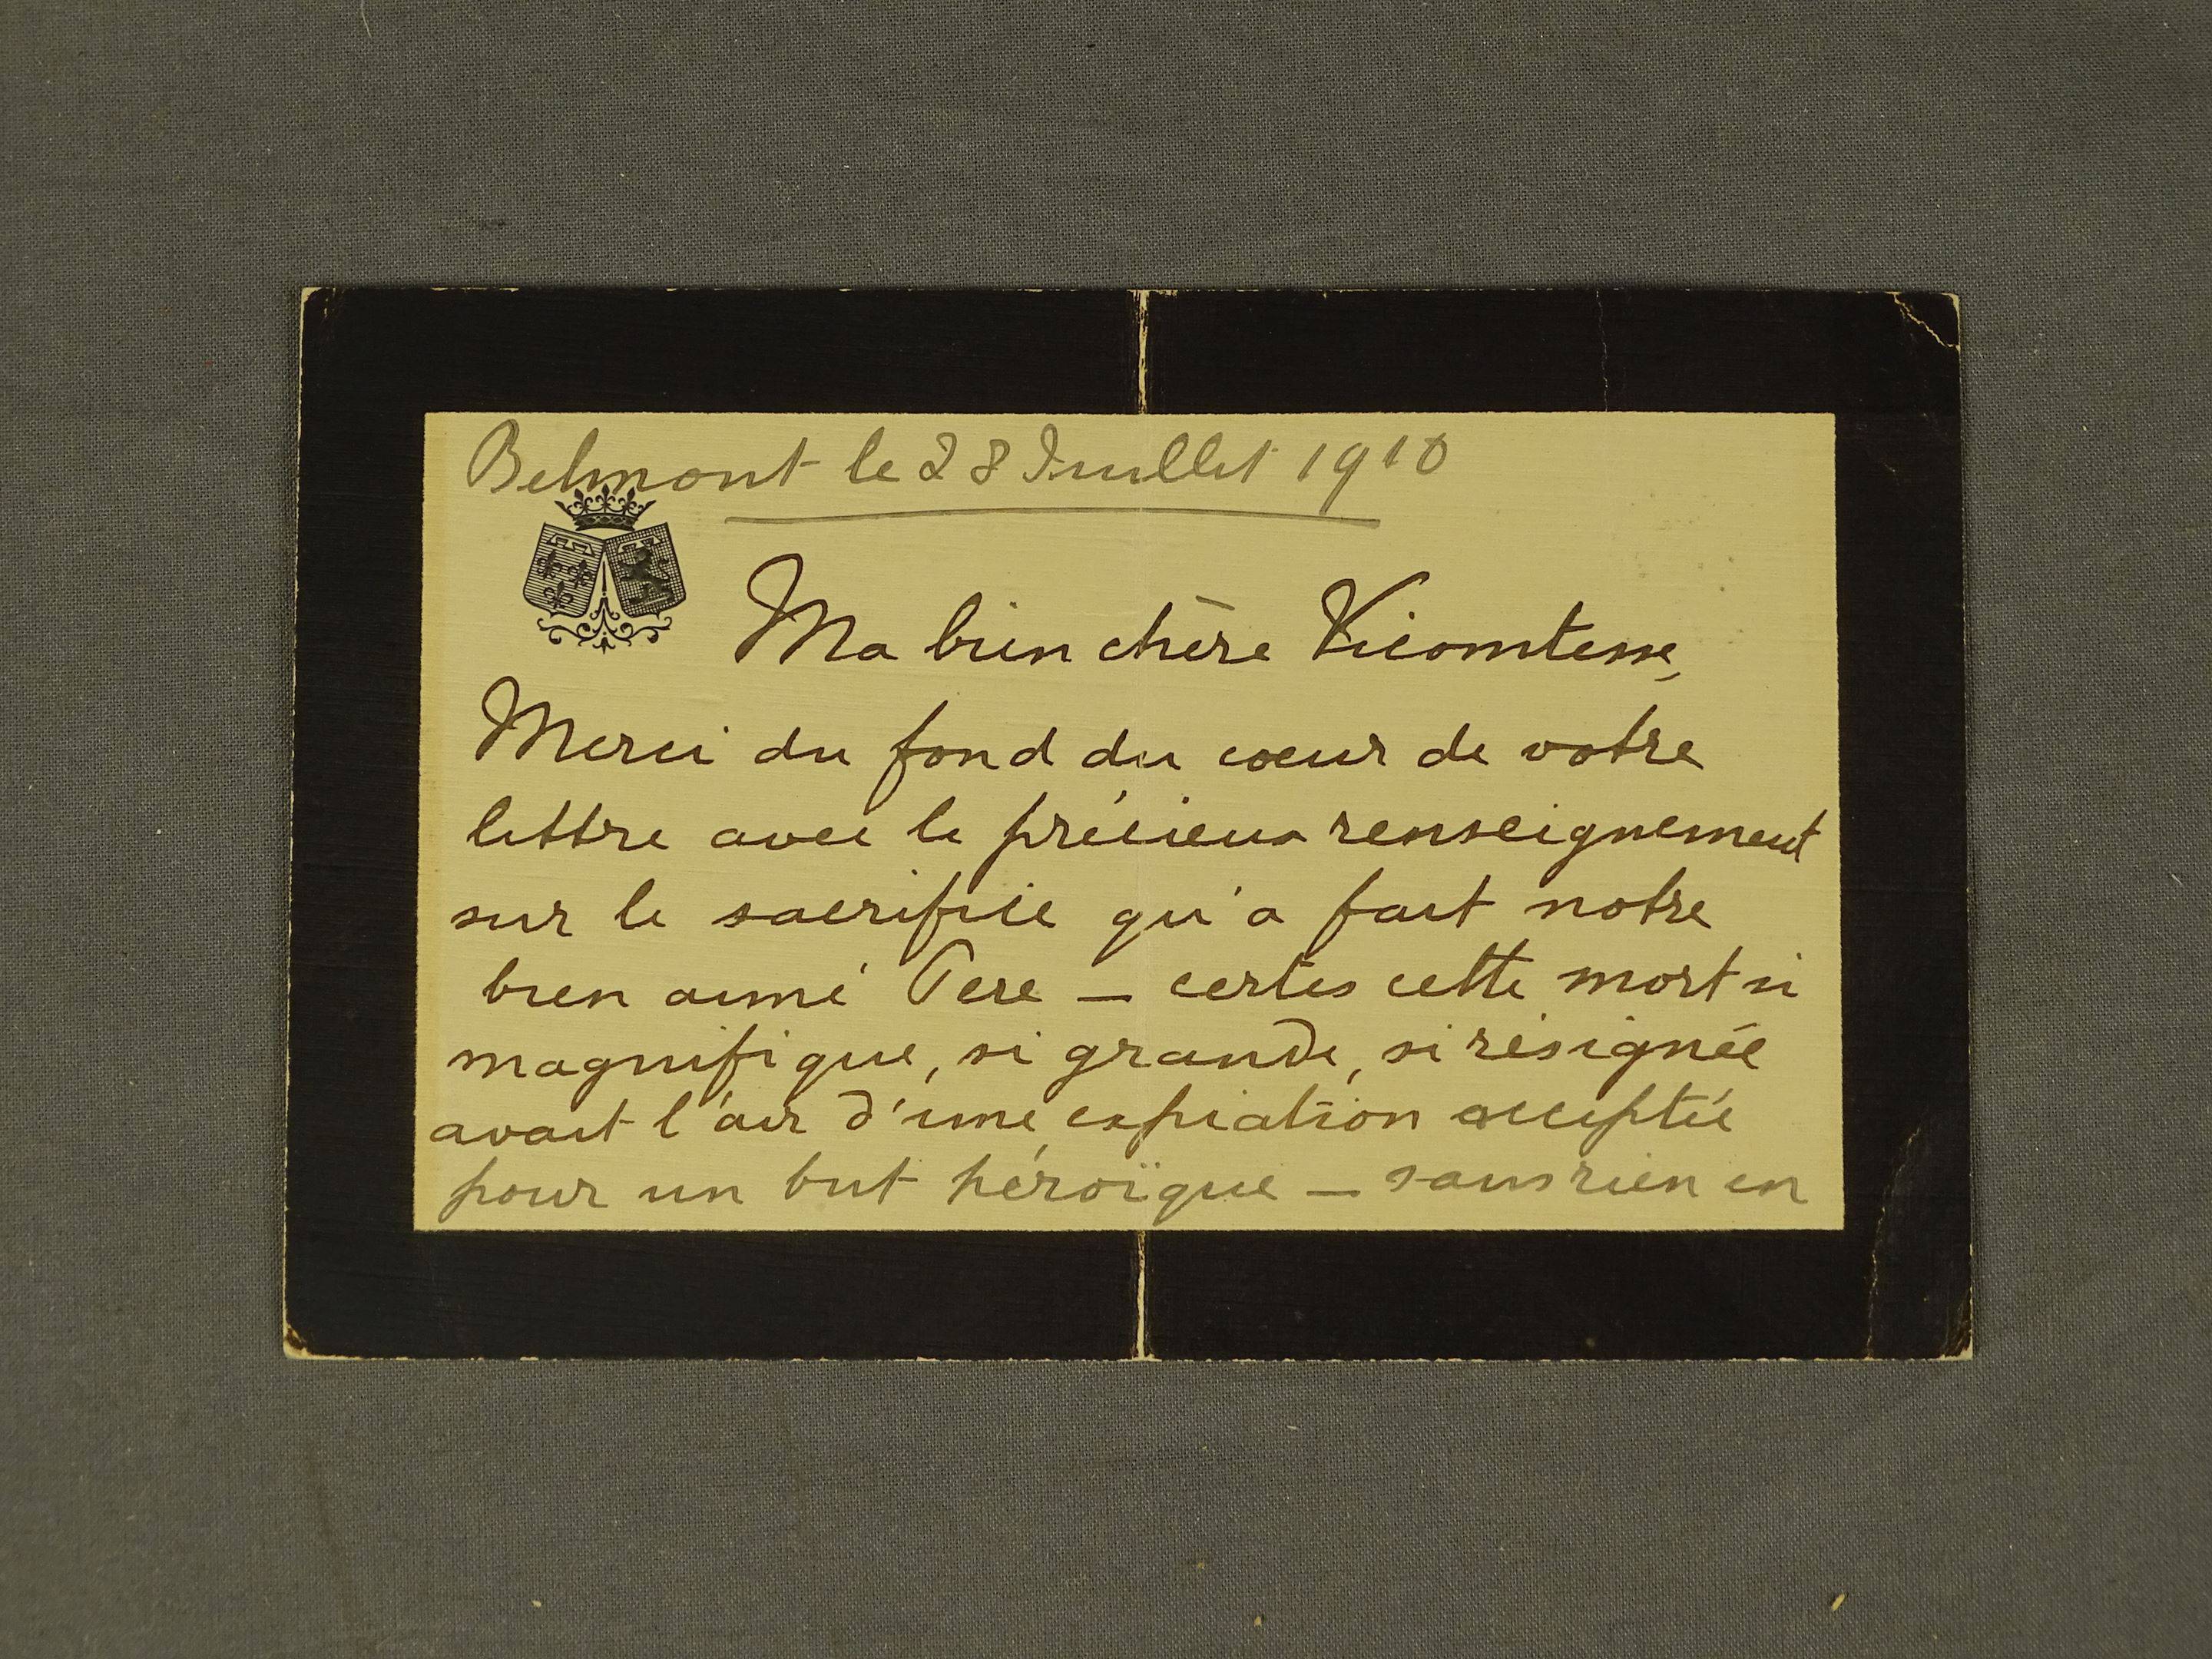 Belmont le 28 Juillet 1910
Ma bien chère Vicomtesse,
Merci du fond du coeur de votre
lettre avec le précieux renseignement
sur le sacrifice qu'a fait notre
bien aimé Père — certes cette mort si
magnifique, si grande, si résignée
avait l'air d'une expiation acceptée
pour un but héroïque — sans rien en